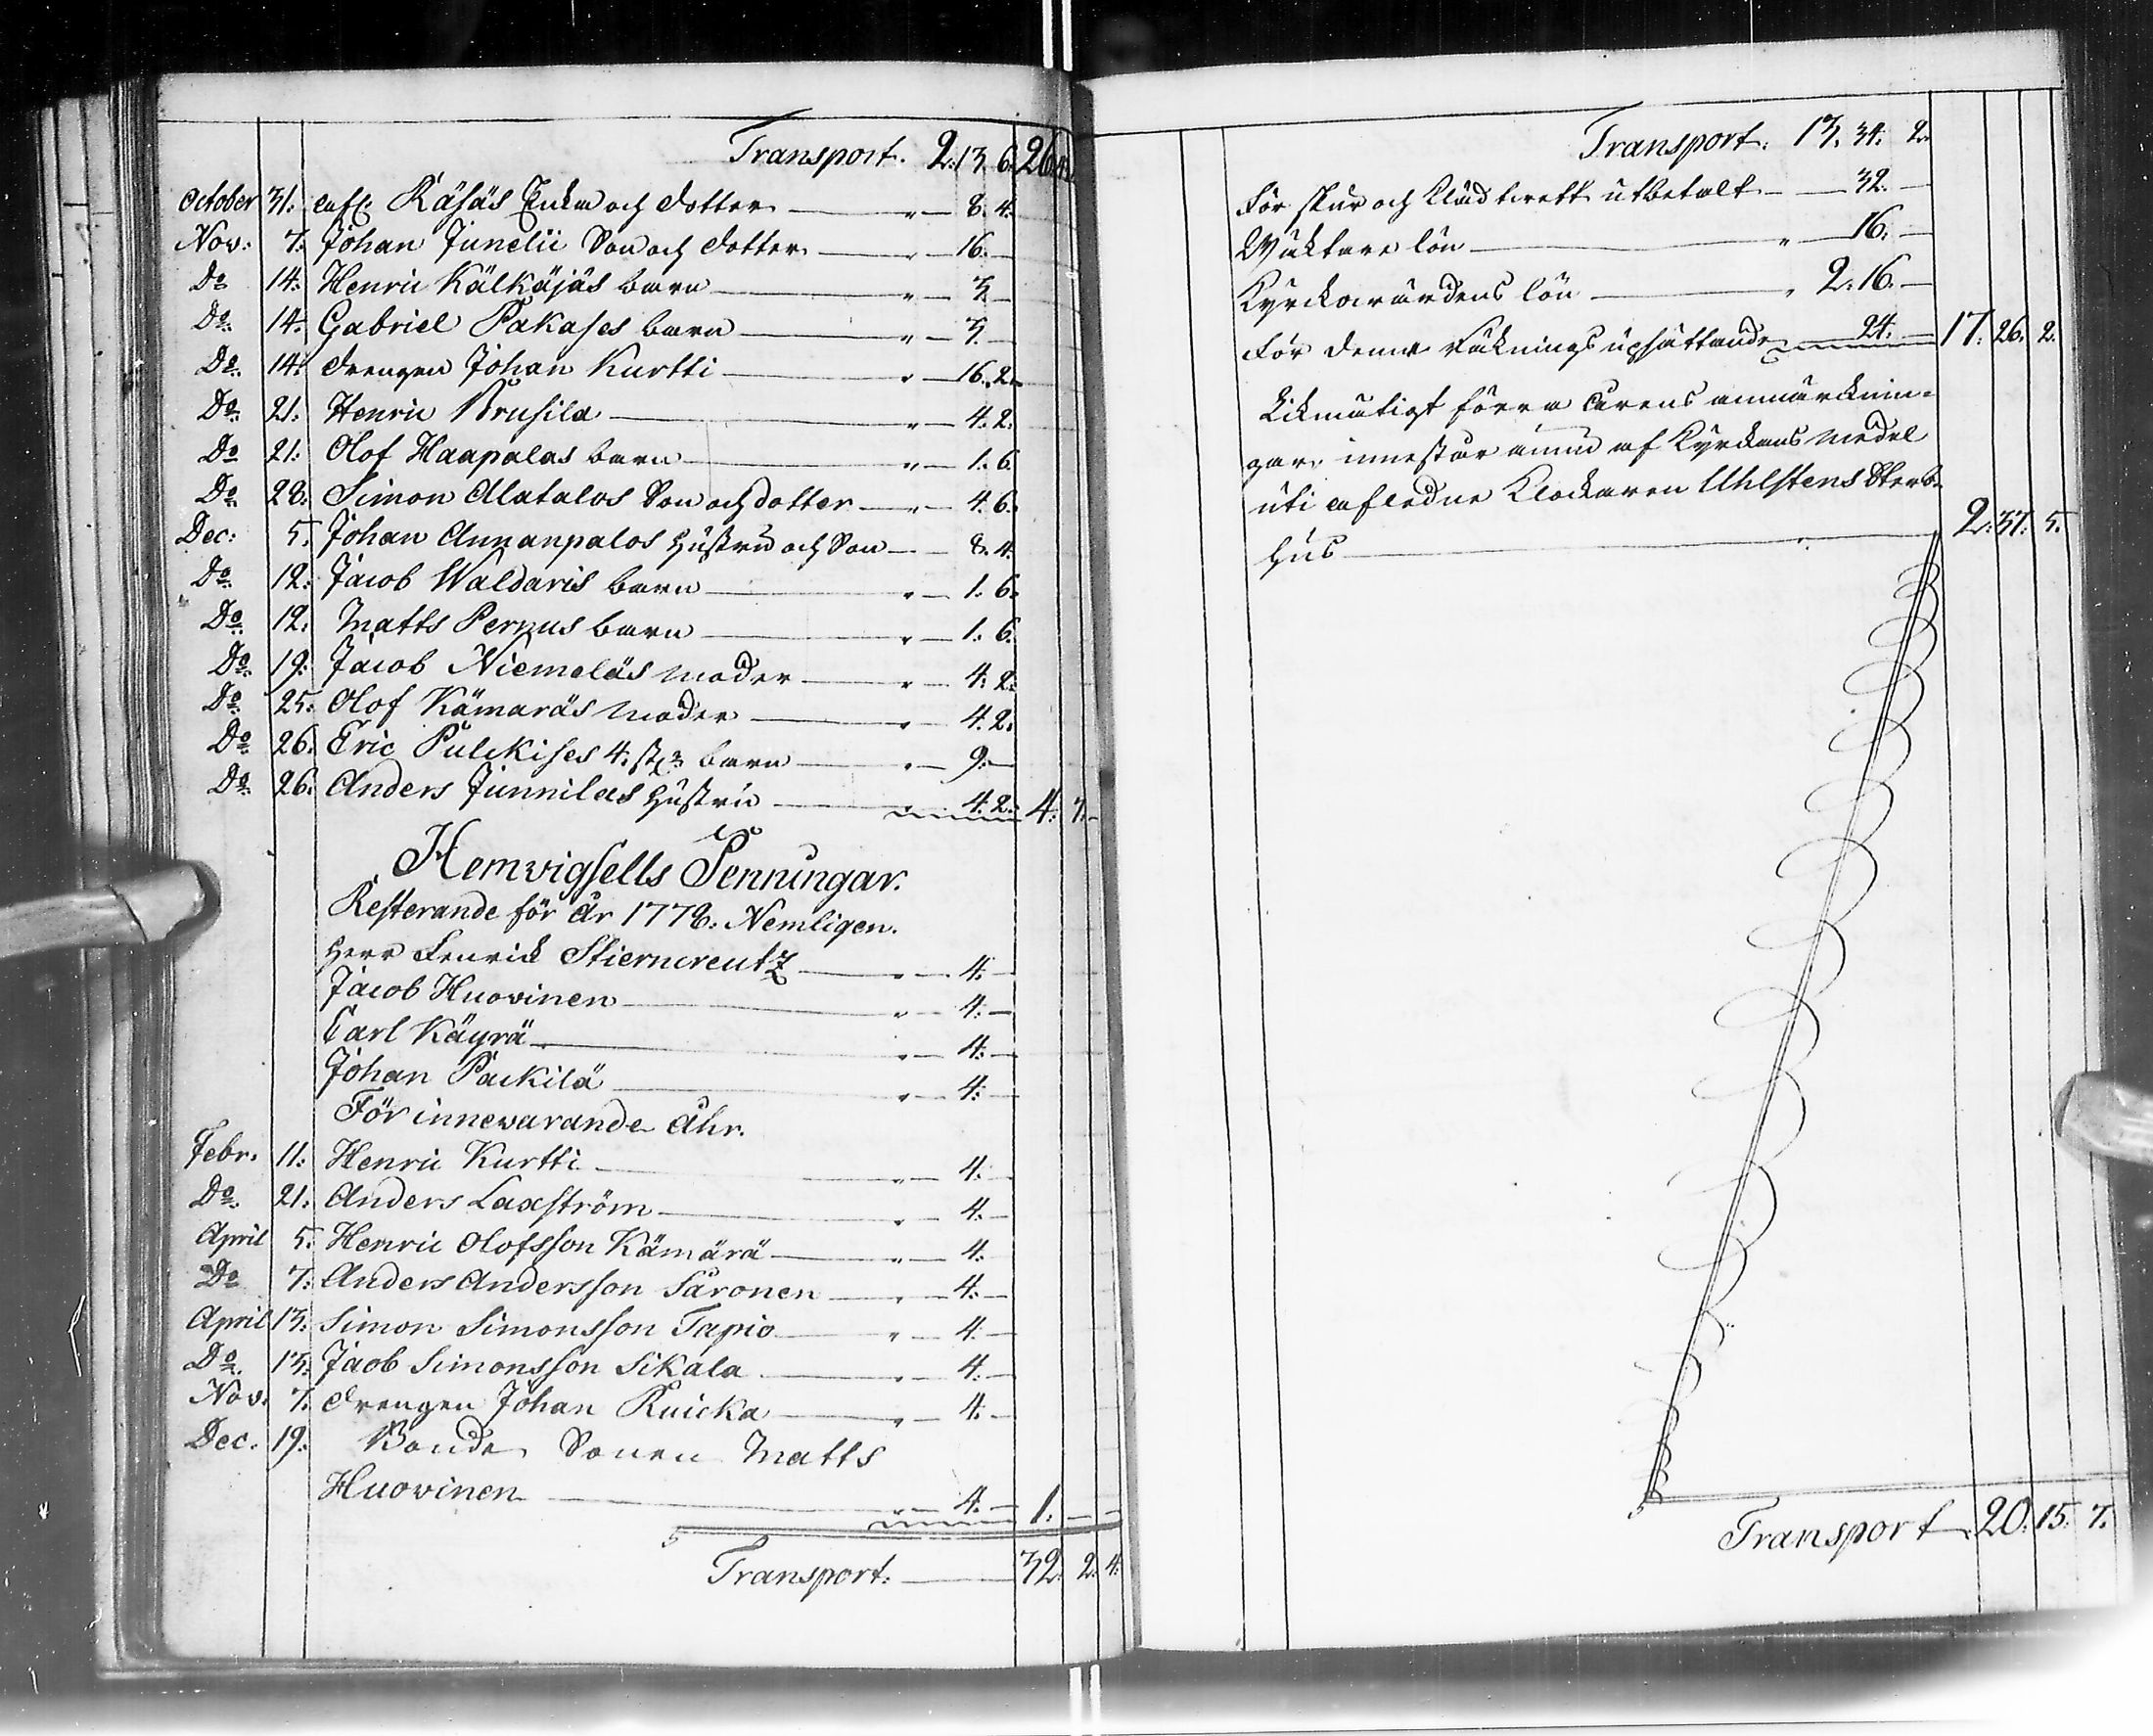 Transport. 2. 13. 6. 26.
October 31. afl. Räsäs Enka och dotter — " — 8. 4.
Nov. 7. Johan Junelii Son och dotter — " — 16. —
Do 14. Henric Kälkäjäs barn — " — 3. —
Do 14. Gabriel Pakases barn — " — 3. —
Do 14. drengen Johan Kurtti — " — 16. 2.
Do 21. Henric Brusila — " — 4. 2.
Do 21. Olof Haapalas barn — " — 1. 6.
Do 28. Simon Alatalos Son och dotter — " — 4. 6.
Dec: 5. Johan Annanpalos hustru och Son — 8. 4.
Do 12. Jacob Waldaris barn — " — 1. 6.
Do 12. Matts Pernus barn — " — 1. 6.
Do 19. Jacob Niemeläs moder — " — 4. 2.
Do 25. Olof Kämäräs moder — " — 4. 2.
Do 26. Eric Pulckises 4. st. barn — " — 9. —
Do 26. Anders Junnilas hustru — " — 4. 2. 4. 7. —
Hemvigsells Penningar.
Resterande för År 1778. Nemligen.
Herr Fenrick Stierncreutz — " — 4. —
Jacob Huovinen — " — 4. —
Carl Käyrä — " — 4. —
Johan Packilä — " — 4. —
För innevarande Åhr.
Febr. 11. Henric Kurtti — " — 4. —
Do 21. Anders Laxström — " — 4. —
April 5. Henric Olofsson Kämärä — " — 4. —
Do 7. Anders Andersson Saronen — " — 4. —
April 13. Simon Simonsson Tapio — " — 4. —
Do 13. Jacob Simonsson Sikala — " — 4. —
Nov. 7. drengen Johan Kuicka — " — 4. —
Dec. 19. Bonde Sonen Matts
Huovinen — " — 4. — 1. — —
Transport. — 32. 2. 4.
Transport. 13. 34. 2.
För skur och Klädtvätt utbetalt — 32. —
Wäktare lön — " — 16. —
Kyrckovärdens lön — " 2. 16. —
För denna Räknings upsättande — 24. — 17. 26. 2.
Likmätigt förra årens anmärcknin-
gar, innestår ännu af Kyrckans medel
uti afledne Klockaren Uhlstens Sterb-
hus — 2. 37. 5.
Transport — 20. 15. 7.